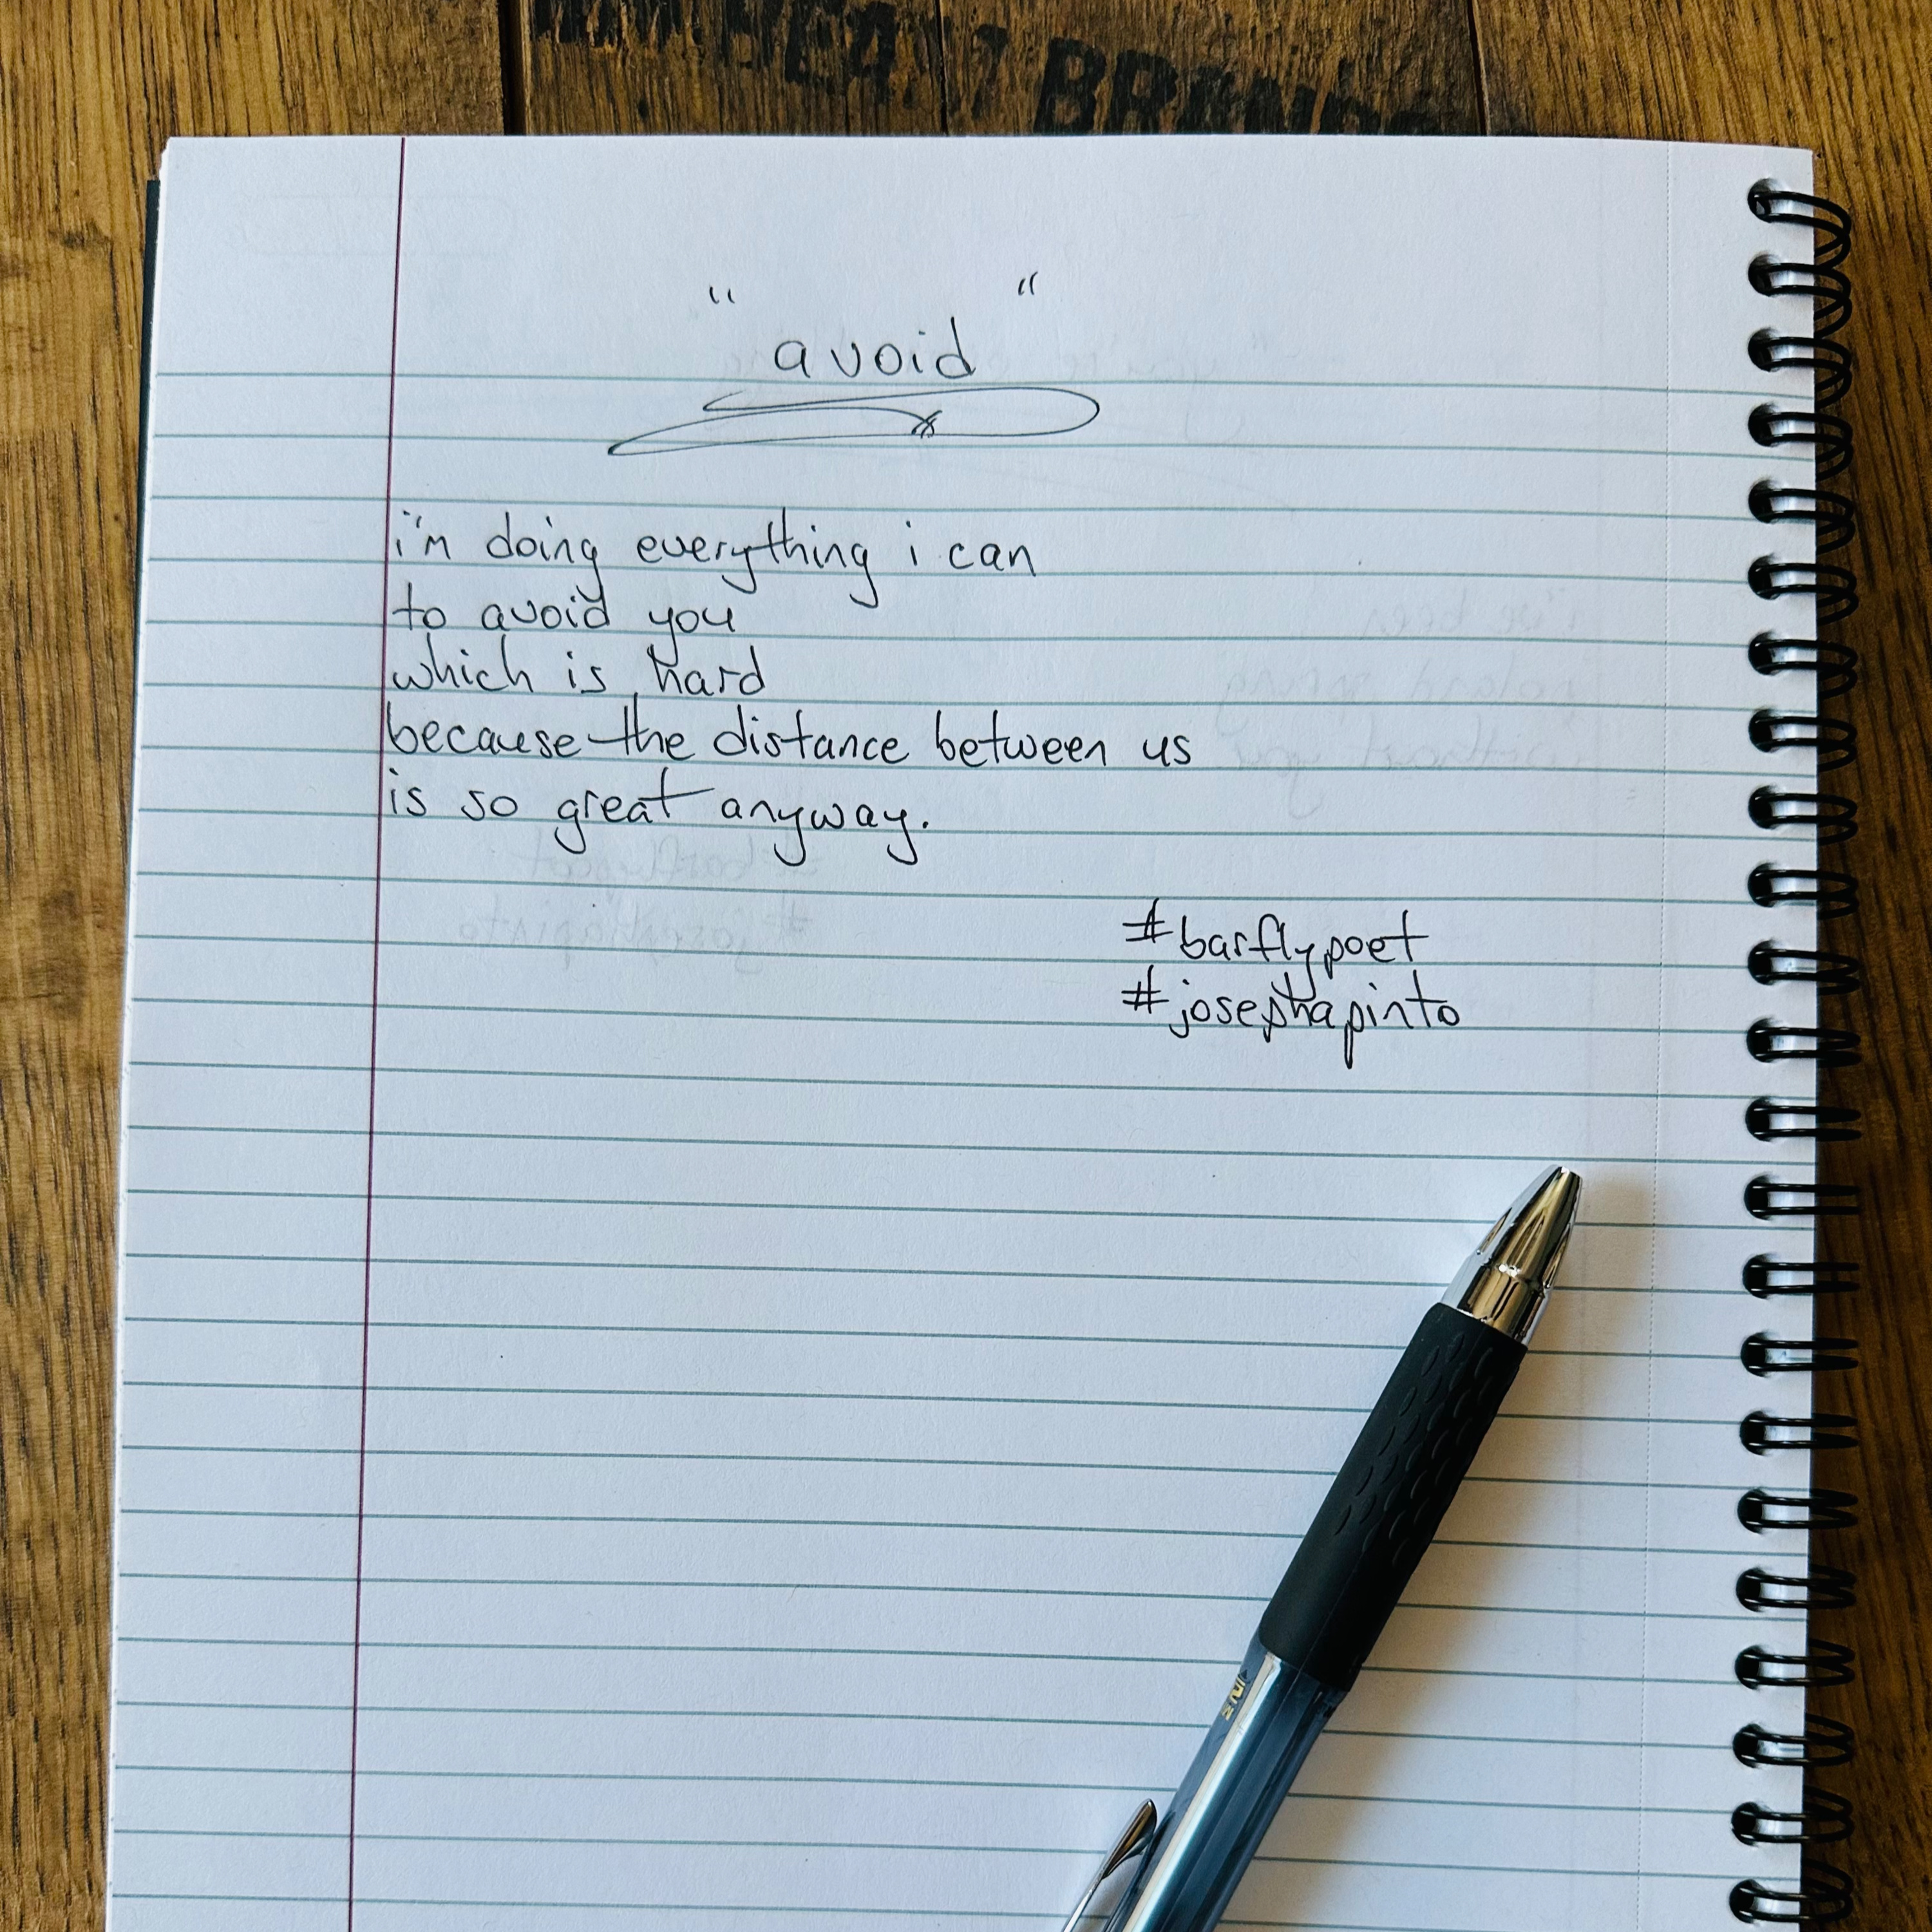 " avoid "
i'm doing everything i can
to avoid you
which is hard
because the distance between us
is so great anyway.
#barflypoet
#josephapinto